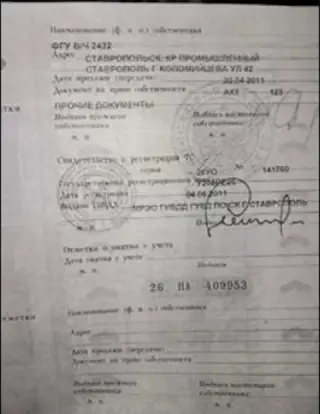 Наименование (ф. и. о.) собственника
ФГУ В/Ч 2432
Адрес СТАВРОПОЛЬСК. КР ПРОМЫШЛЕННЫЙ
СТАВРОПОЛЬ Г КОЛОМИЙЦЕВА УЛ 42
Дата продажи (передачи) 22.04.2011
Документ на право собственности АКТ - 123
ПРОЧИЕ ДОКУМЕНТЫ
Подпись прежнего собственника
Подпись настоящего собственника
М. П.
Свидетельство о регистрации ТС
серия 26УО № 141760
Государственный регистрационный
Дата регистрации 04.06.2011
Выдано ГИБДД МРЭО ГИБДД ГУВД ПО СК Г.СТАВРОПОЛЬ
М. П.
Отметка о снятии с учета
Дата снятия с учета
М. П. Подпись
26 НА 409953
Наименование (ф. и. о.) собственника
Адрес
Дата продажи (передачи)
Документ на право собственности
Подпись прежнего собственника
Подпись настоящего собственника
М. П. М. П.